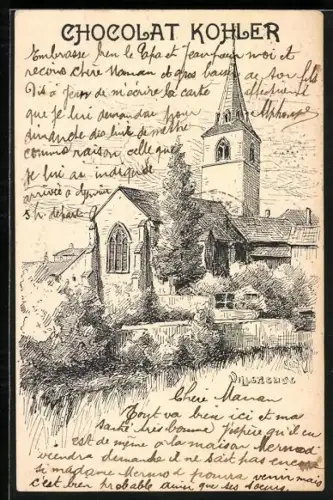 CHOCOLAT KOHLER
Embrasse bien le Papa et Jean pour moi et
recois chère Maman et gros baiser de ton fils
Dis à Jean de m'écrire la carte affectionné
que je lui demandai pour Alphonse
dimanche dis lui de mettre
comme raison celle que
je lui ai indiquée
arrivée à
5 h. départ
VILLENEUVE
Chère Maman
Tout va bien ici et ma
santé très bonne j'espère qu'il en
est de même à la maison Mermod
viendra demande il ne sait pas encore
si madame Mermod pourra venir mais
c'est bien probable ainsi que ses soeurs